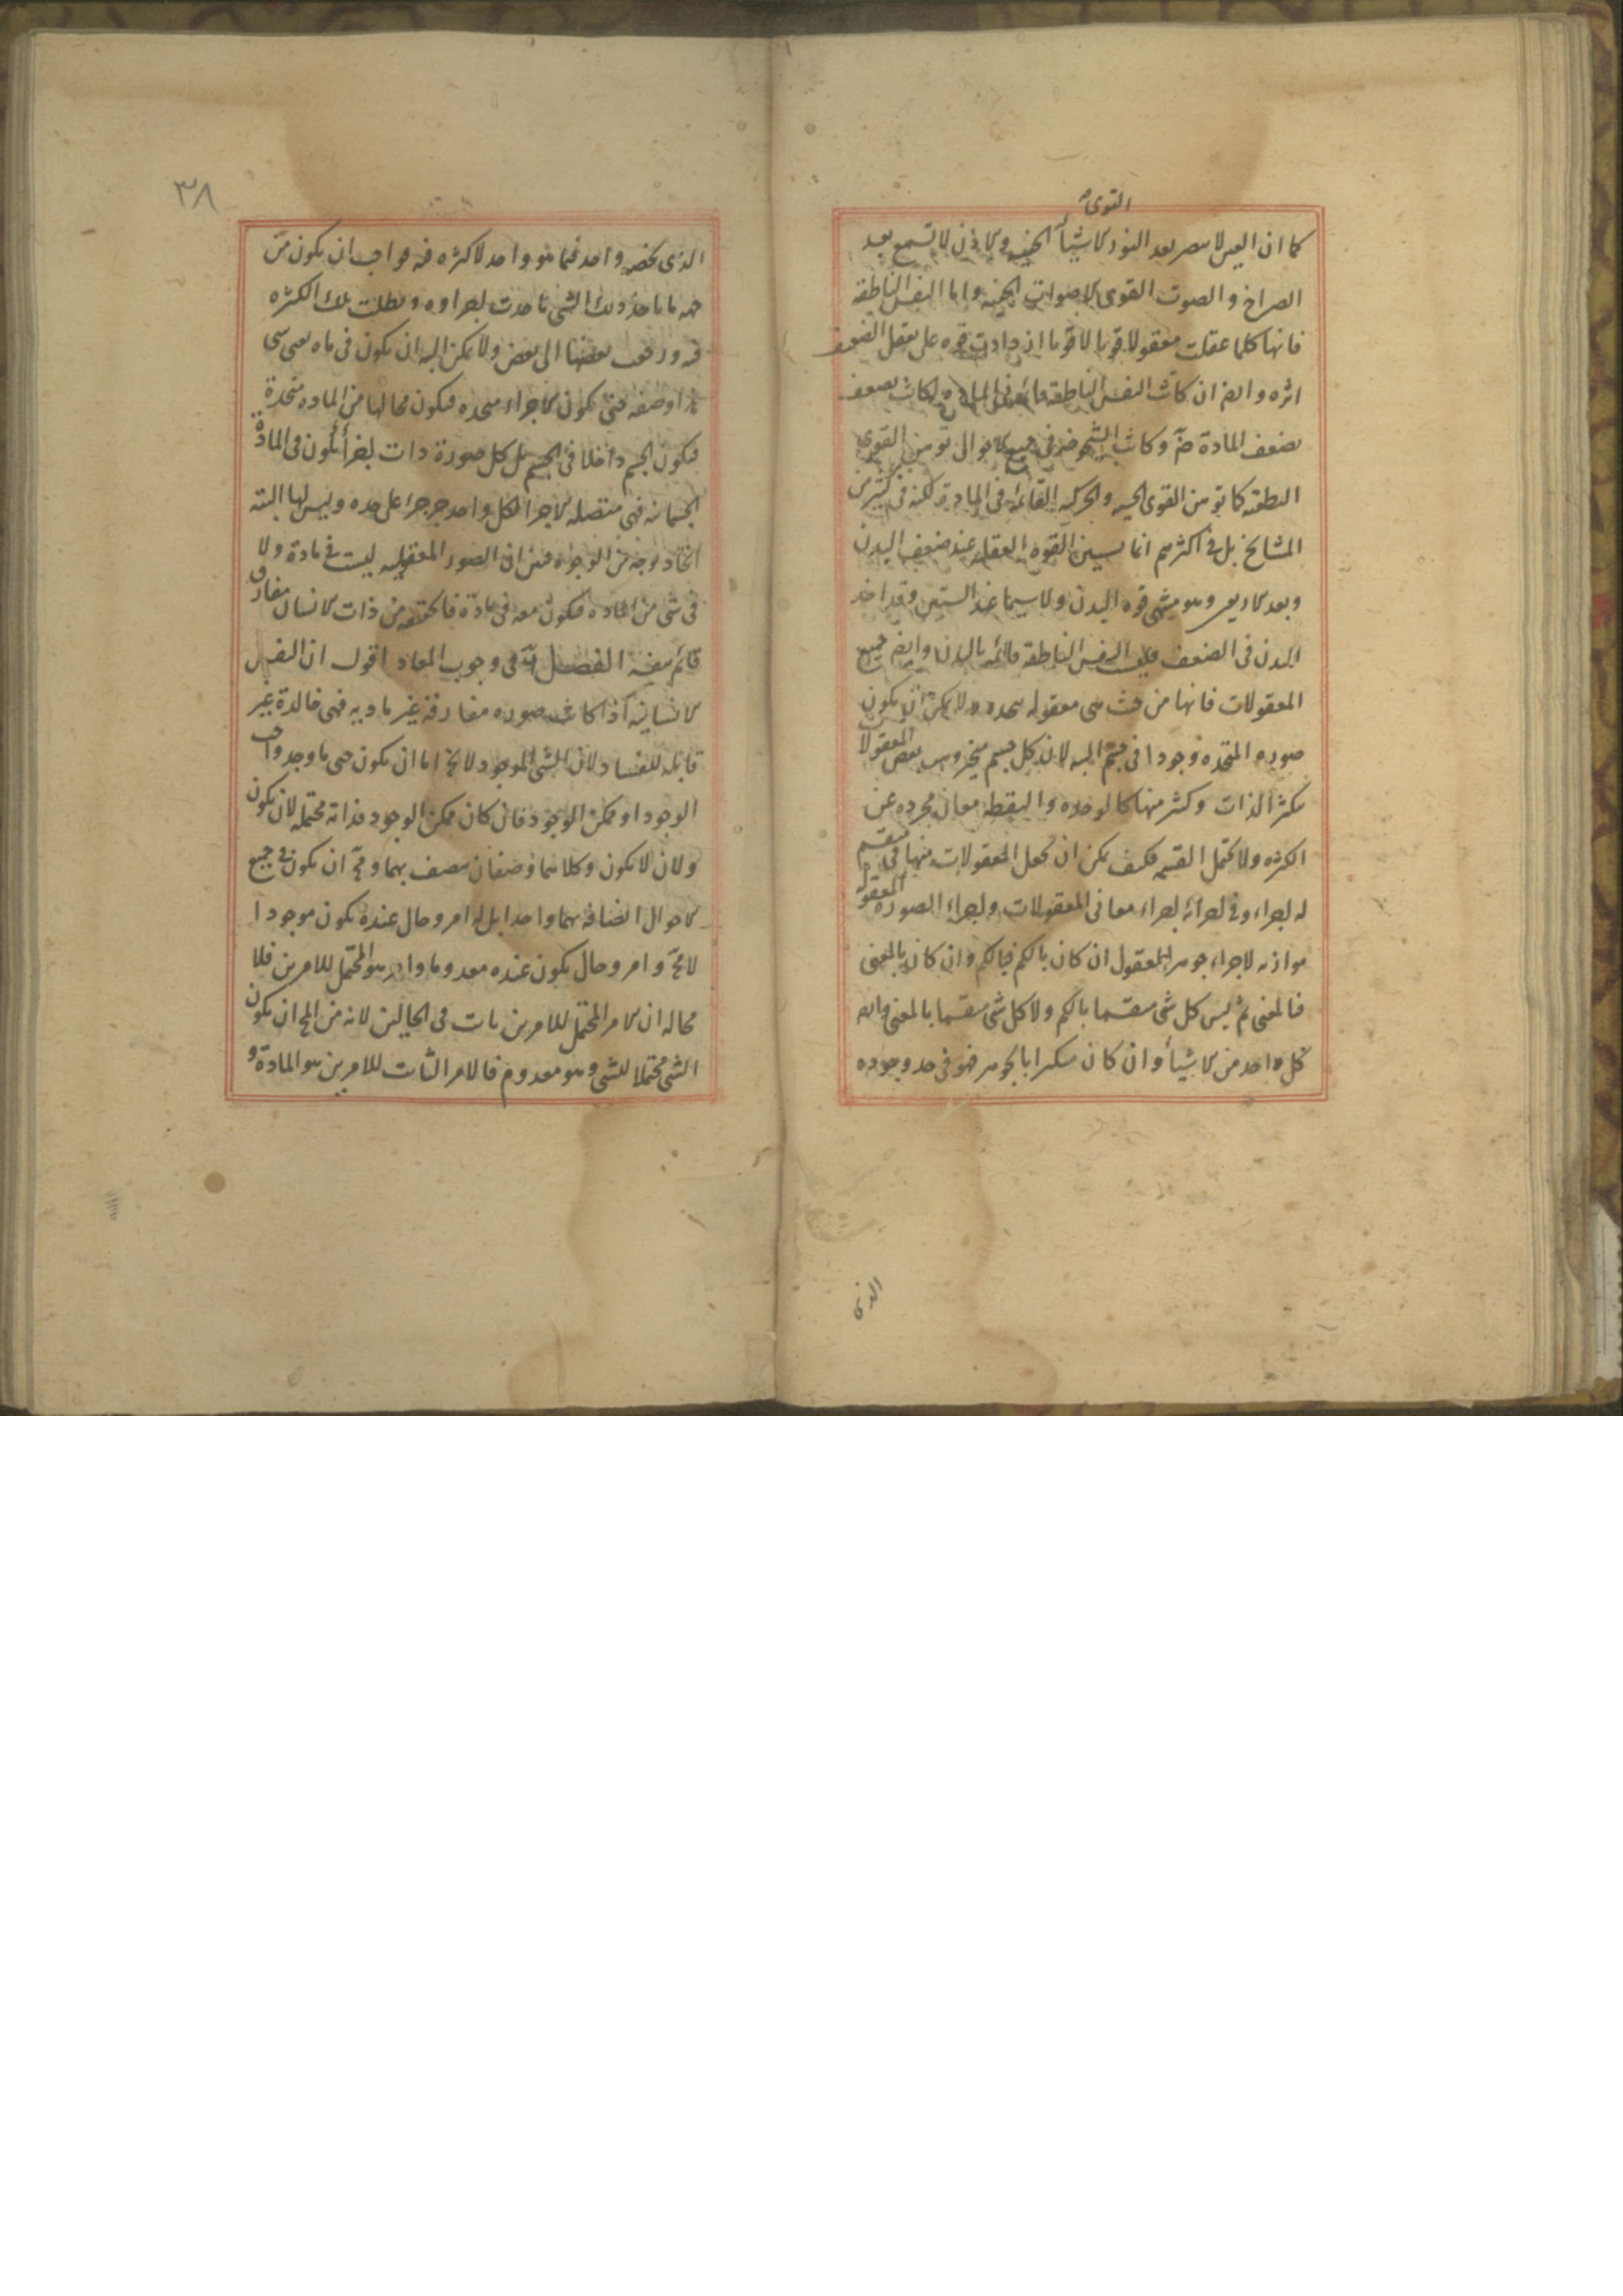 القوى
كما ان العين لا تبصر بعد النور الاشيأ الخفيه والاذن لا تسمع بعد
الصراخ والصوت القوى الاصوات الخفيه واما النفس الناطقه
فانها كلما عقلت معقولا قويا لا قويا ازدادت قوه على تعقل الضعيف
اثره وايض ان كانت النفس الناطقه قائمه فى الماده لكانت تضعف
بضعف المادة ضر وكانت الشيخوخه فى جميع الاحوال توهن القوى
النطقيه كما توهن القوى الحسيه والحركيه القائمه فى الماديه لكنه فى كثير من
المشايخ بل فى اكثرهم انما يستبين القوه العقليه عند ضعف البدن
وبعد الاربعين وهو منتهى قوه البدن ولا سيما عند الستين وقد اخذ
البدن فى الضعف فليست النفس الناطقه قائمه بالبدن وايض جميع
المعقولات فانها من حيث هى معقوله متحده ولا يمكن ان يكون
صوره المتحده وجودا فى جسم البته لان كل جسم متجز وليس بعض المعقولا
متكثر الذات وكثير منها كالوحده والنقطه معان مجرده عن
الكثره ولا تحتمل القسمه فكيف يمكن ان تجعل المعقولات منها فى منقسم
له اجزاء وفى اجزائه اجزاء معانى المعقولات واجزاء الصوره المعقوله
موازنه لاجزاء جوهر المعقول ان كان بالكم فبالكم وان كان بالمعنى
فالمعنى ثم ليس كل شى منقسما بالكم ولا كل شى منقسما بالمعنى وايض
فكل واحد من الاشيأ وان كان متكثرا بالجوهر فهو فى حد وجوده
الذى
٣٨
الذى يخصه واحد فما هو واحد لا كثره فيه فواجب ان يكون من
جهه ما ياخذ ذلك الشى تاحدت اجزاوه وبطلت تلك الكثره
فيه ورفعت بعضها الى بعض ولا يمكن البته ان يكون فى ماده
او صفه حتى يكون الاجزاء متحده فيكون محالها من الماده متحدة
فيكون الجسم داخلا فى الجسم بل كل صورة ذات اجزأ تكون فى المادة
الجسمانيه فهى منفصله الاجزا لكل واحد جزء جزء على حده وليس لها البته
اتحاد بوجه من الوجوه فبين ان الصور المعقوله ليست فى مادة ولا
فى شى من الماده فيكون معه فى مادة فالحقيقه من ذات الانسان مفارق
قائم بنفسه الفصل فى وجوب المعاد اقول ان النفس
الانسانيه اذا كانت صوره مفارقه غير ماديه فهى خالدة غير
قابله للفساد لان الشى الموجود لا يخ اما ان يكون حين ما وجد واجب
الوجود او ممكن الوجود فان كان ممكن الوجود فذاته محتمله لان يكون
ولان لا يكون وكلاهما وصفان متصف بهما ومح ان يكون فى جميع
الاحوال اتصافه بهما واحدا بل له امر وحال عنده يكون موجودا
لا مح وامر وحال يكون عنده معدوما وايض هو المحتمل للامرين فلا
محاله ان الامر المحتمل للامرين ثابت فى الحالين لانه من المح ان يكون
الشى محتملا للشى وهو معدوم فالامر الثابت للامرين هو المادة و